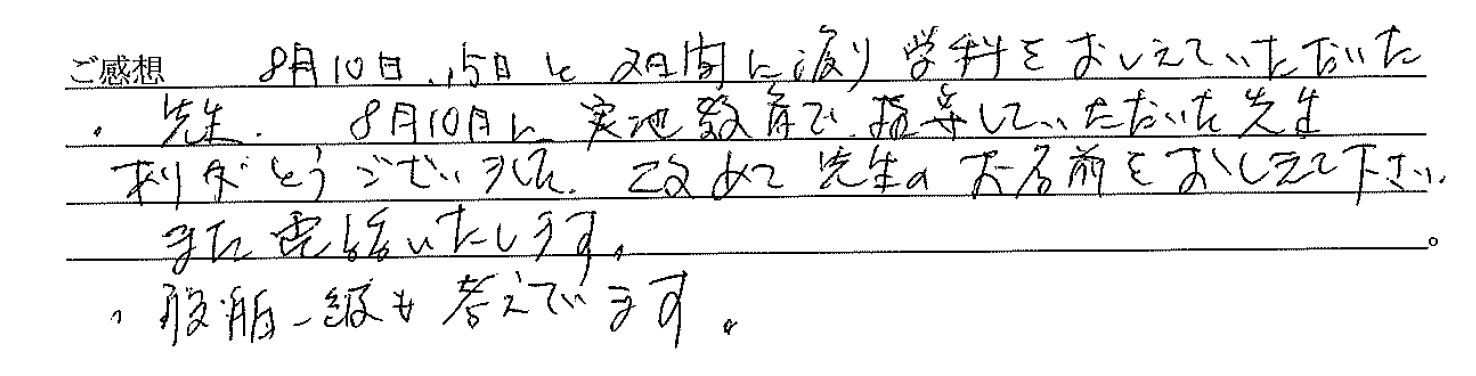 ご感想 8月10日、15日と2日間に渡り学科をおしえていただいた
・先生. 8月10日に実地教育で指導していただいた先生
ありがとうございました. 改めて先生のお名前をおしえて下さい.
また電話いたします。
・船舶一級も考えています。